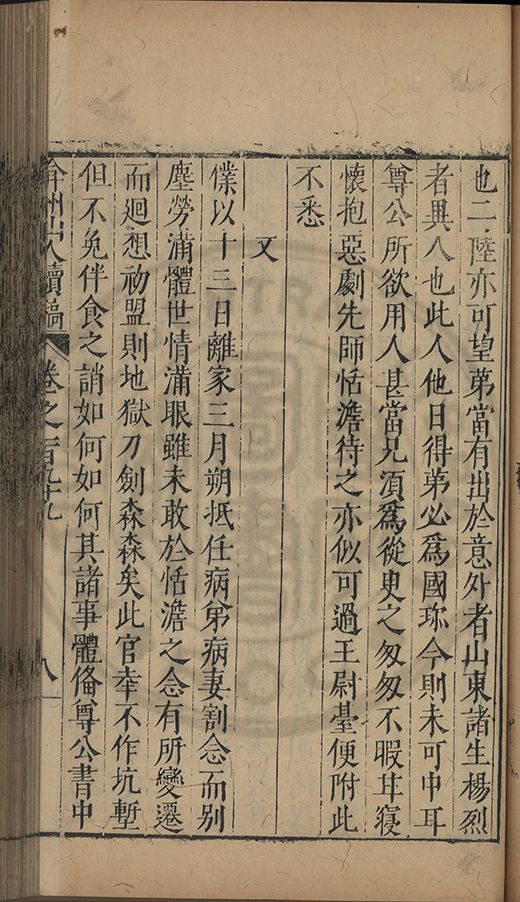 也二陸亦可望第當有出於意外者山東諸生楊烈
者異人也此人他日得第必爲國珎今則未可中耳
尊公所欲用人甚當兄湏爲從臾之匆匆不暇耳寝
懷抱惡劇先師恬澹待之亦似可過王尉臺便附此
不悉
又
僕以十三日離家三月朔抵任病弟病妻割念而别
塵勞滿體世情滿眼雖未敢於恬澹之念有所變遷
而廻想初盟則地獄刀劍森森矣此官幸不作坑塹
但不免伴食之誚如何如何其諸事體俻尊公書中
弇州山人續稿 卷之一百九十九 八